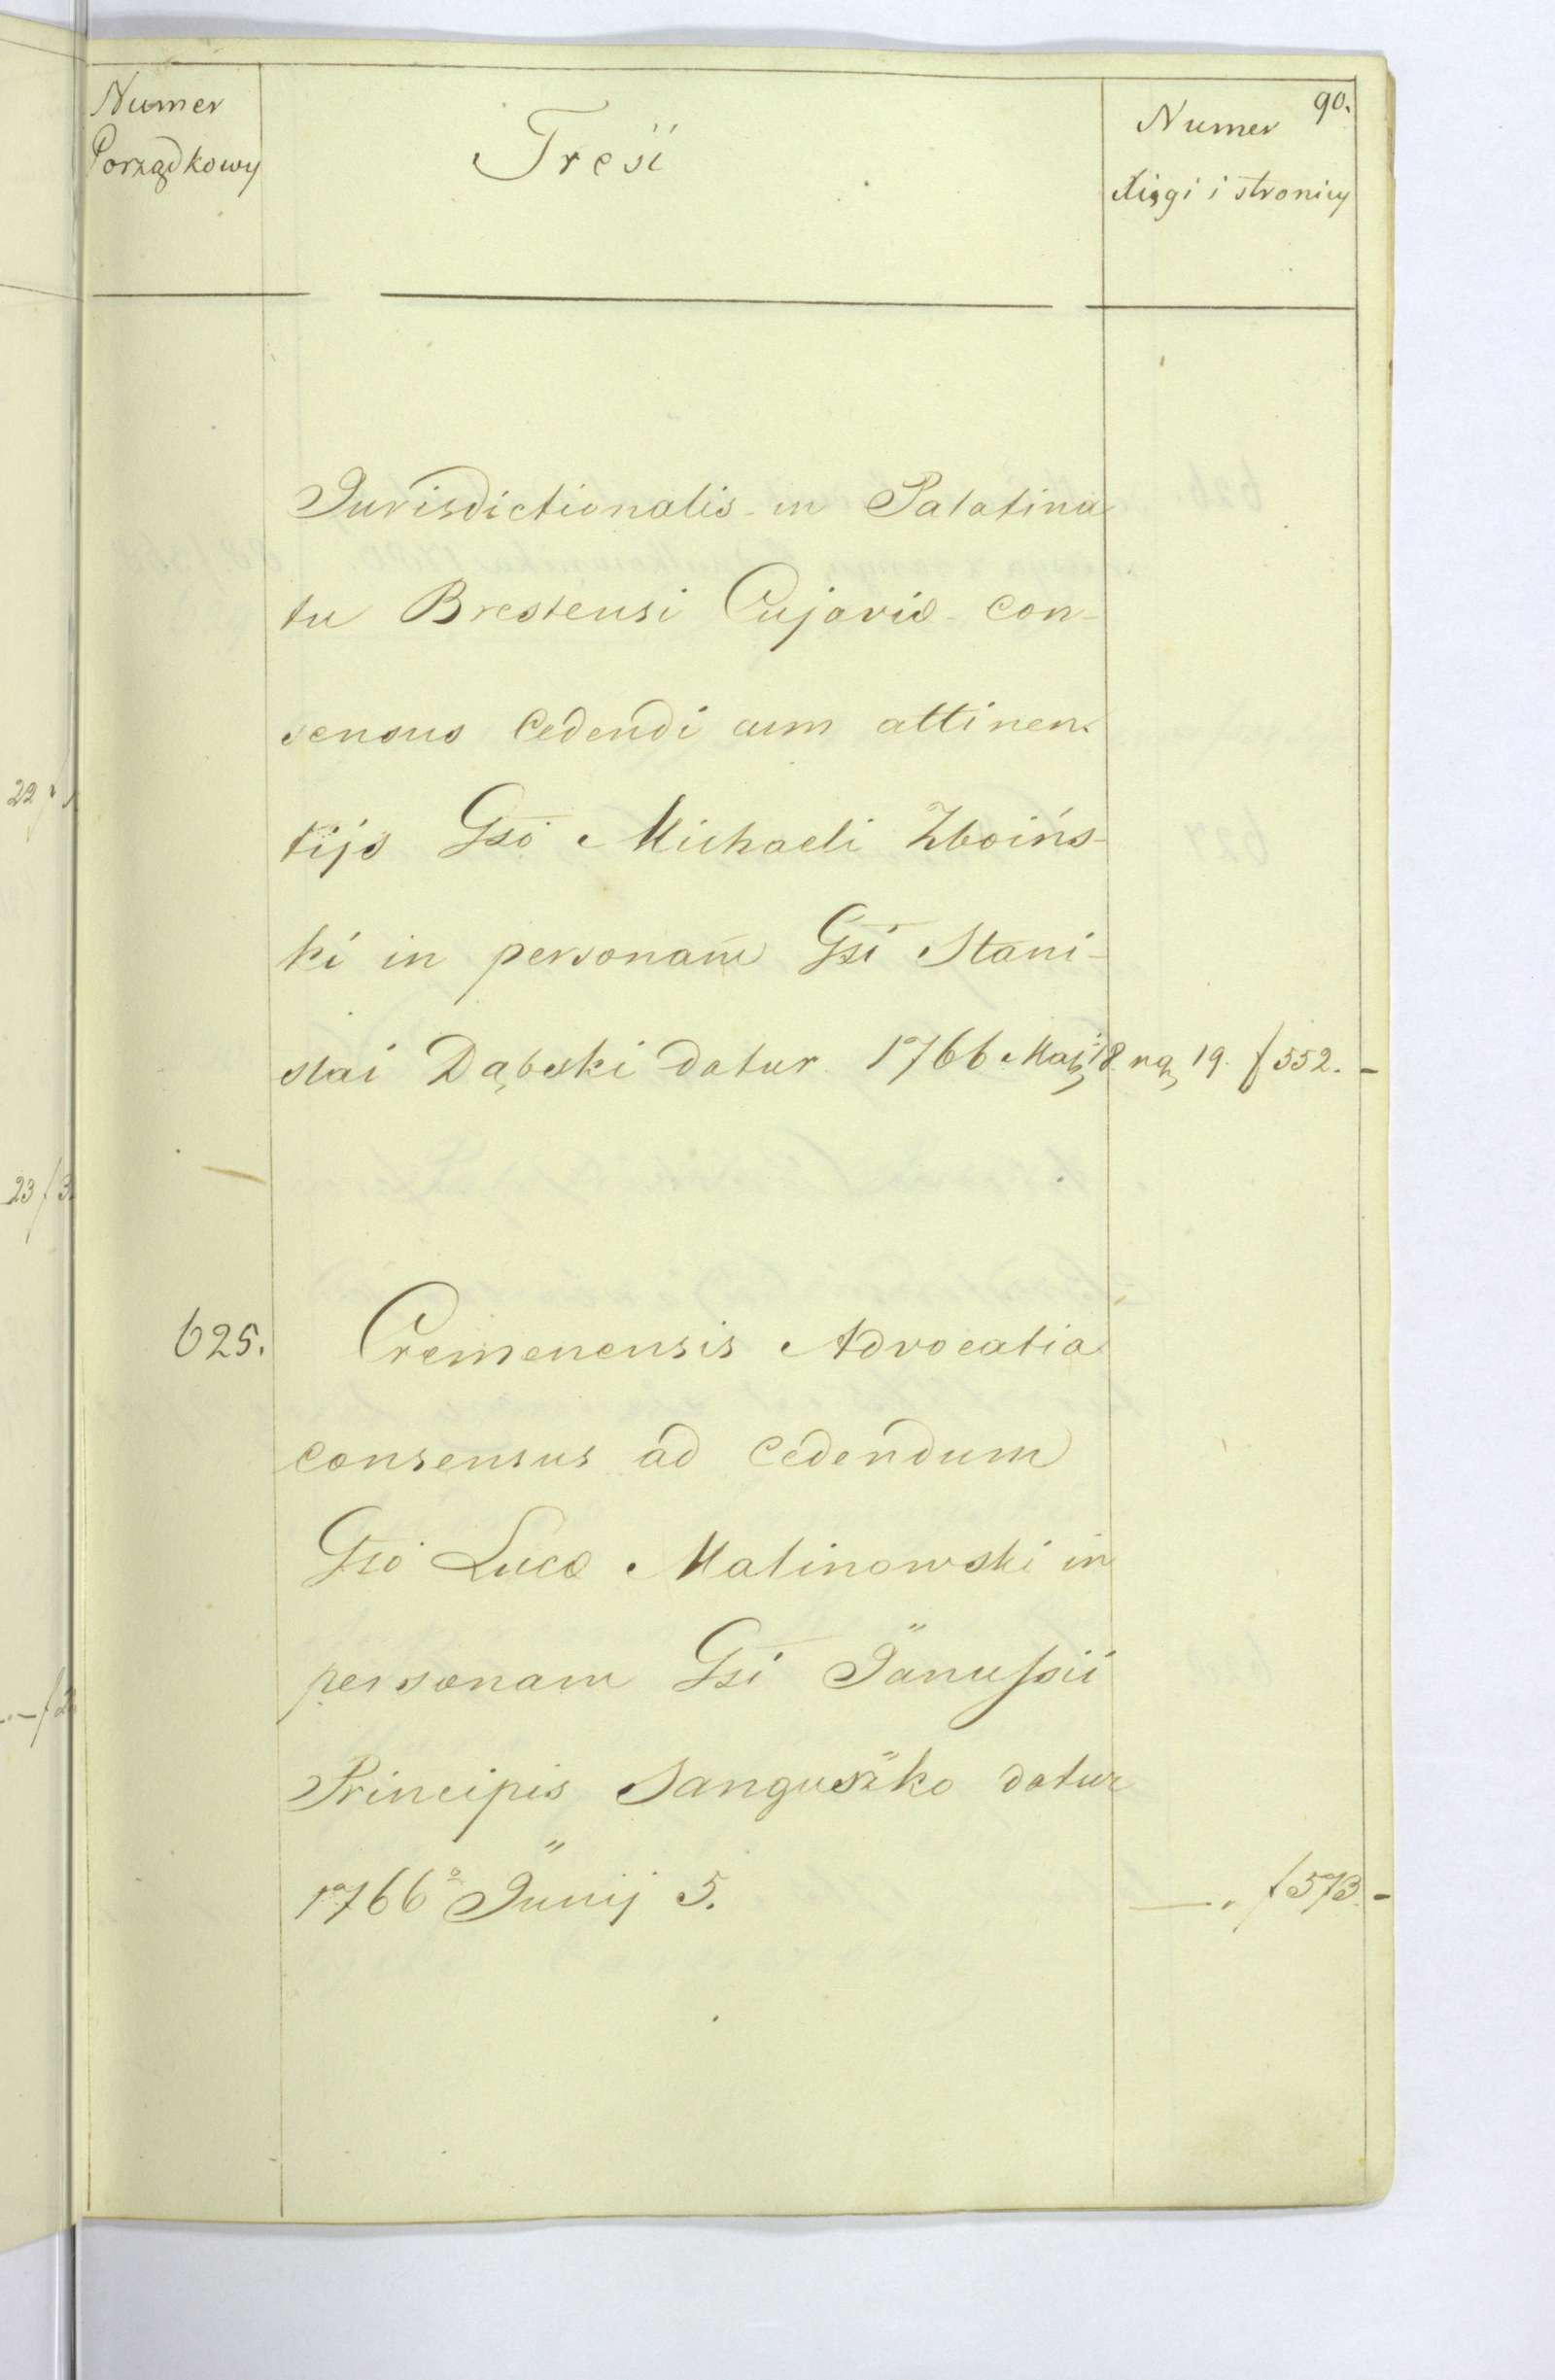 90.
Numer Porządkowy
Treść
Numer
Xięgi i stronicy
Jurisdictionalis in Palatina
tu Brestensi Cujaviæ con-
sensus Cedendi cum attinen-
tijs Gso Michaeli Zboińs-
ki in personam Gsi Stani-
slai Dąbski datur 1766 Maij 18 19. f 552. -
625. Cremenensis Advocatia
consensus ad Cedendum
Gso Lucæ Malinowski in
personam Gsi Janussii
Principis Sanguszko datur
1766o Junij 5. —. f 573. -